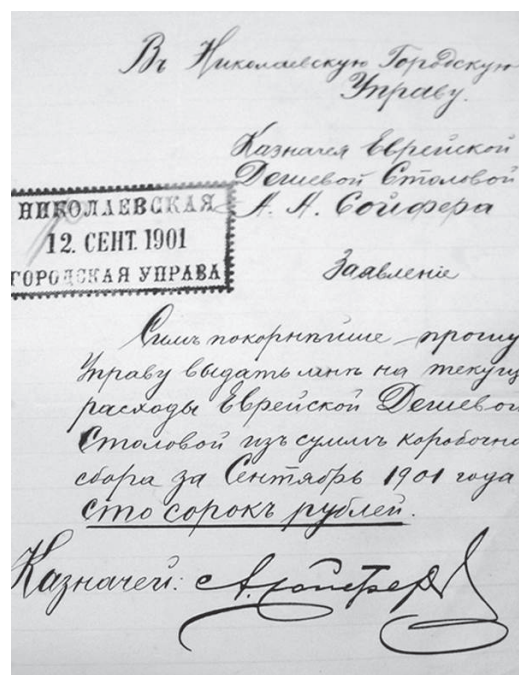 Въ Николаевскую Городскую
Управу.
Казначея Еврейской
Дешевой Столовой
А. А. Сойфера
НИКОЛАЕВСКАЯ
12. СЕНТ. 1901
ГОРОДСКАЯ УПРАВА
Заявленіе
Симъ покорнѣйше прошу
Управу выдать мнѣ на текущ
расходы Еврейской Дешевой
Столовой изъ суммъ коробочно
сбора за Сентябрь 1901 года
сто сорокъ рублей.
Казначей: А. Сойфер